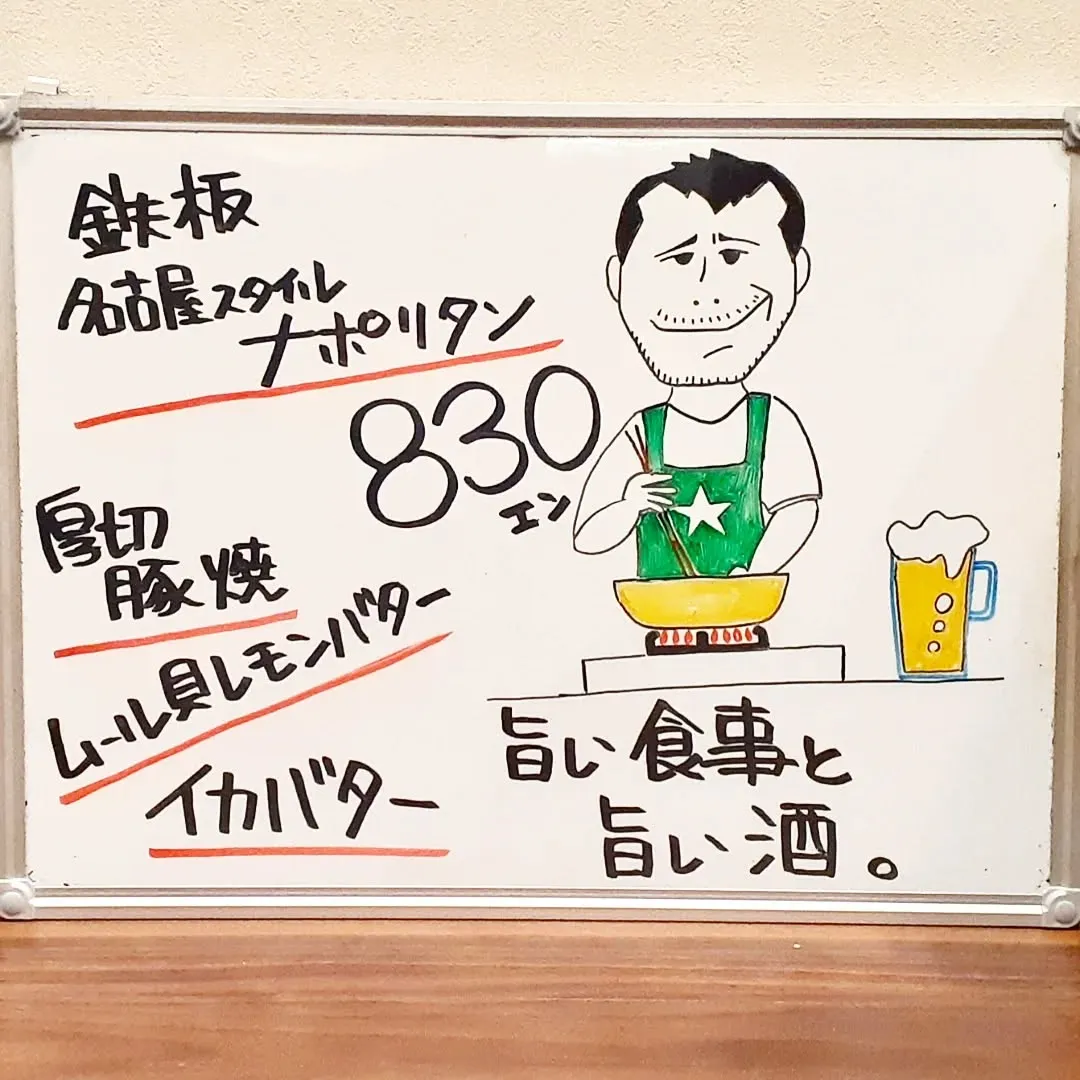 鉄板
名古屋スタイル
ナポリタン
830
エン
厚切
豚焼
ムール貝レモンバター
イカバター
旨い食事と
旨い酒。